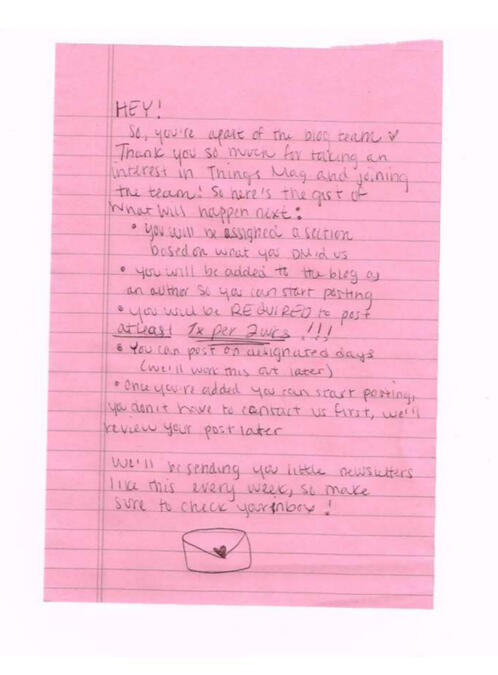 HEY!
So, you're apart of the blog team ♥
Thank you so much for taking an
interest in Things Mag and joining
the team! So here's the gist of
what will happen next:
• you will be assigned a section
based on what you DM'd us
• you will be added to the blog as
an author so you can start posting
• you will be REQUIRED to post
at least 1x per 2wks !!!
• You can post on designated days
(we'll work this out later)
• Once you're added you can start posting,
you don't have to contact us first, we'll
review your post later
We'll be sending you little newsletters
like this every week, so make
sure to check your inbox!